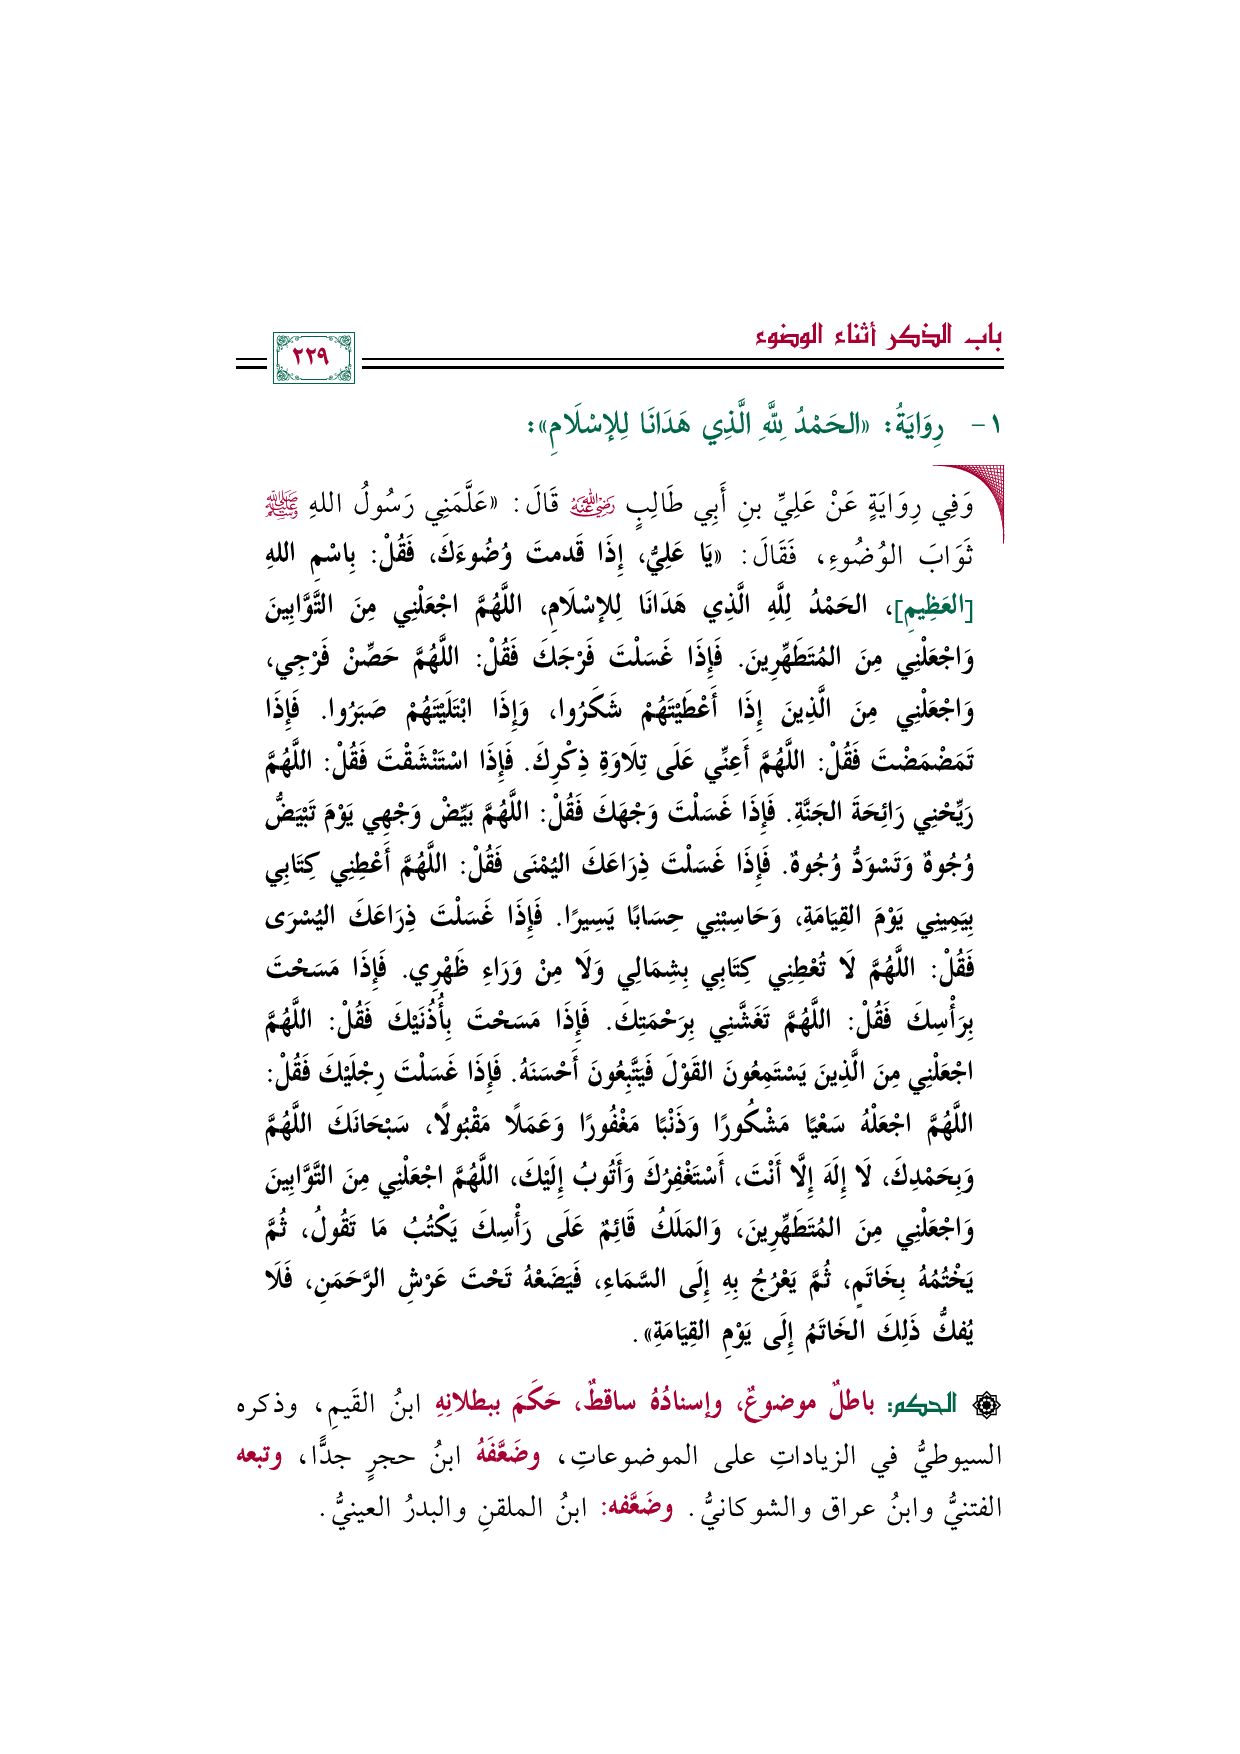 باب الذكر أثناء الوضوء
٢٢٩
١- رِوَايَةُ: «الحَمْدُ لِلَّهِ الَّذِي هَدَانَا لِلإِسْلَامِ»:
وَفِي رِوَايَةٍ عَنْ عَلِيِّ بنِ أَبِي طَالِبٍ رضي الله عنه قَالَ: «عَلَّمَنِي رَسُولُ اللهِ ﷺ
ثَوَابَ الوُضُوءِ، فَقَالَ: «يَا عَلِيُّ، إِذَا قَدمتَ وُضُوءَكَ، فَقُلْ: بِاسْمِ اللهِ
[العَظِيمِ]، الحَمْدُ لِلَّهِ الَّذِي هَدَانَا لِلإِسْلَامِ، اللَّهُمَّ اجْعَلْنِي مِنَ التَّوَّابِينَ
وَاجْعَلْنِي مِنَ المُتَطَهِّرِينَ. فَإِذَا غَسَلْتَ فَرْجَكَ فَقُلْ: اللَّهُمَّ حَصِّنْ فَرْجِي،
وَاجْعَلْنِي مِنَ الَّذِينَ إِذَا أَعْطَيْتَهُمْ شَكَرُوا، وَإِذَا ابْتَلَيْتَهُمْ صَبَرُوا. فَإِذَا
تَمَضْمَضْتَ فَقُلْ: اللَّهُمَّ أَعِنِّي عَلَى تِلَاوَةِ ذِكْرِكَ. فَإِذَا اسْتَنْشَقْتَ فَقُلْ: اللَّهُمَّ
رَيِّحْنِي رَائِحَةَ الجَنَّةِ. فَإِذَا غَسَلْتَ وَجْهَكَ فَقُلْ: اللَّهُمَّ بَيِّضْ وَجْهِي يَوْمَ تَبْيَضُّ
وُجُوهٌ وَتَسْوَدُّ وُجُوهٌ. فَإِذَا غَسَلْتَ ذِرَاعَكَ اليُمْنَى فَقُلْ: اللَّهُمَّ أَعْطِنِي كِتَابِي
بِيَمِينِي يَوْمَ القِيَامَةِ، وَحَاسِبْنِي حِسَابًا يَسِيرًا. فَإِذَا غَسَلْتَ ذِرَاعَكَ اليُسْرَى
فَقُلْ: اللَّهُمَّ لَا تُعْطِنِي كِتَابِي بِشِمَالِي وَلَا مِنْ وَرَاءِ ظَهْرِي. فَإِذَا مَسَحْتَ
بِرَأْسِكَ فَقُلْ: اللَّهُمَّ تَغَشَّنِي بِرَحْمَتِكَ. فَإِذَا مَسَحْتَ بِأُذُنَيْكَ فَقُلْ: اللَّهُمَّ
اجْعَلْنِي مِنَ الَّذِينَ يَسْتَمِعُونَ القَوْلَ فَيَتَّبِعُونَ أَحْسَنَهُ. فَإِذَا غَسَلْتَ رِجْلَيْكَ فَقُلْ:
اللَّهُمَّ اجْعَلْهُ سَعْيًا مَشْكُورًا وَذَنْبًا مَغْفُورًا وَعَمَلًا مَقْبُولًا، سَبْحَانَكَ اللَّهُمَّ
وَبِحَمْدِكَ، لَا إِلَهَ إِلَّا أَنْتَ، أَسْتَغْفِرُكَ وَأَتُوبُ إِلَيْكَ، اللَّهُمَّ اجْعَلْنِي مِنَ التَّوَّابِينَ
وَاجْعَلْنِي مِنَ المُتَطَهِّرِينَ، وَالمَلَكُ قَائِمٌ عَلَى رَأْسِكَ يَكْتُبُ مَا تَقُولُ، ثُمَّ
يَخْتُمُهُ بِخَاتَمٍ، ثُمَّ يَعْرُجُ بِهِ إِلَى السَّمَاءِ، فَيَضَعْهُ تَحْتَ عَرْشِ الرَّحَمَنِ، فَلَا
يُفكُّ ذَلِكَ الخَاتَمُ إِلَى يَوْمِ القِيَامَةِ».
الحكم: باطلٌ موضوعٌ، وإسنادُهُ ساقطٌ، حَكَمَ ببطلانِهِ ابنُ القَيمِ، وذكره
السيوطيُّ في الزياداتِ على الموضوعاتِ، وضَعَّفَهُ ابنُ حجرٍ جدًّا، وتبعه
الفتنيُّ وابنُ عراق والشوكانيُّ. وضَعَّفه: ابنُ الملقنِ والبدرُ العينيُّ.